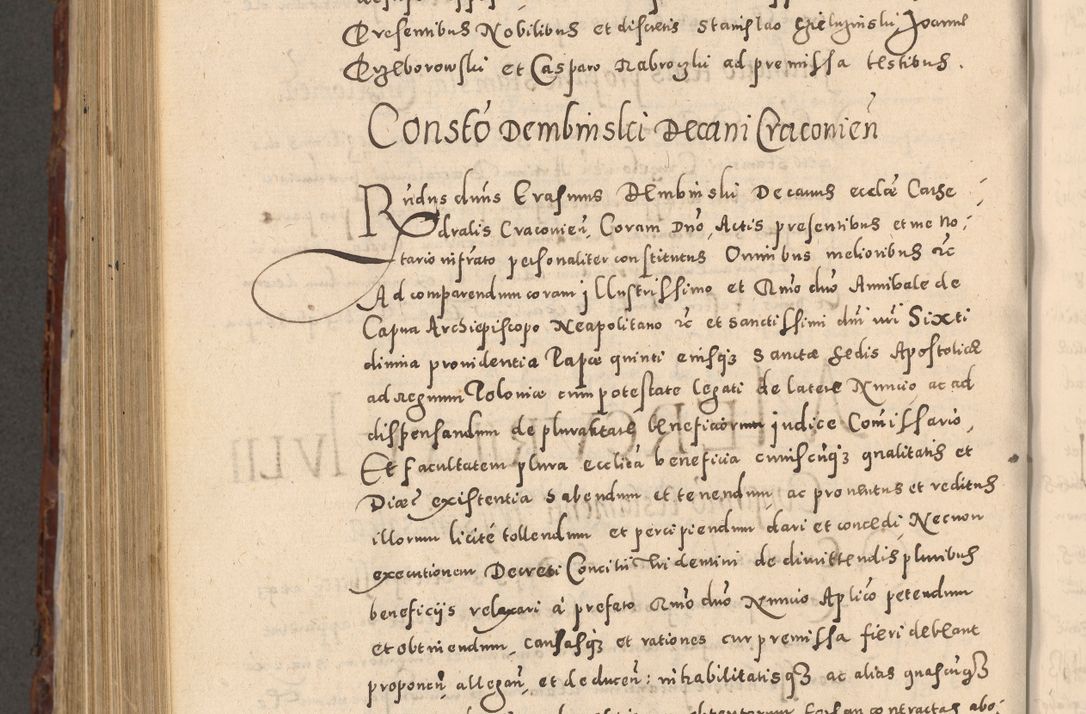 Presentibus Nobilibus et discretis Stanislao Joanne
Przeborowski et Casparo Nabroczki ad premissa testibus.
Constō Dembinski Decani Cracovien̄
Rn̄dus dn̄us Erasmus Dembinski Decanus eccl̄æ Cathe-
dralis Cracovien̄, Coram Dn̄o, Actis presentibus et me No-
tario infrāto personaliter constitutus Omnibus melioribus &c
Ad comparendum coram jllustrissimo et Rm̄o dn̄o Annibale de
Capua Archiepiscopo Neapolitano &c et sanctissimi dn̄i nr̄i Sixti
divina providentia Papæ quinti eiusq₃ Sanctæ Sedis Apostolicæ
ad regnum Poloniæ cum potestate legati de latere Nuncio, ac ad
dispensandum de pluralitate beneficiorum judice Comissario,
Et facultatem plura eccl̄ica beneficia cuiuscūq₃ qualitatis et
existentia habendum et tenendum, ac proventus et reditus
illorum licitè tollendum et percipiendum dari et concedi, Necnon
executionem Decreti Concilii Tridentini de dimittendis pluribus
beneficijs relaxari à prefato Rm̄o dn̄o Nuncio Apl̄ico petendum
et obtinendum, causasq₃ et rationes cur premissa fieri debeant
proponen̄ allegan̄, et deducen̄: inhabilitatisq₃ ac alias quascūq₃
obtentorum forsan contractas abo-